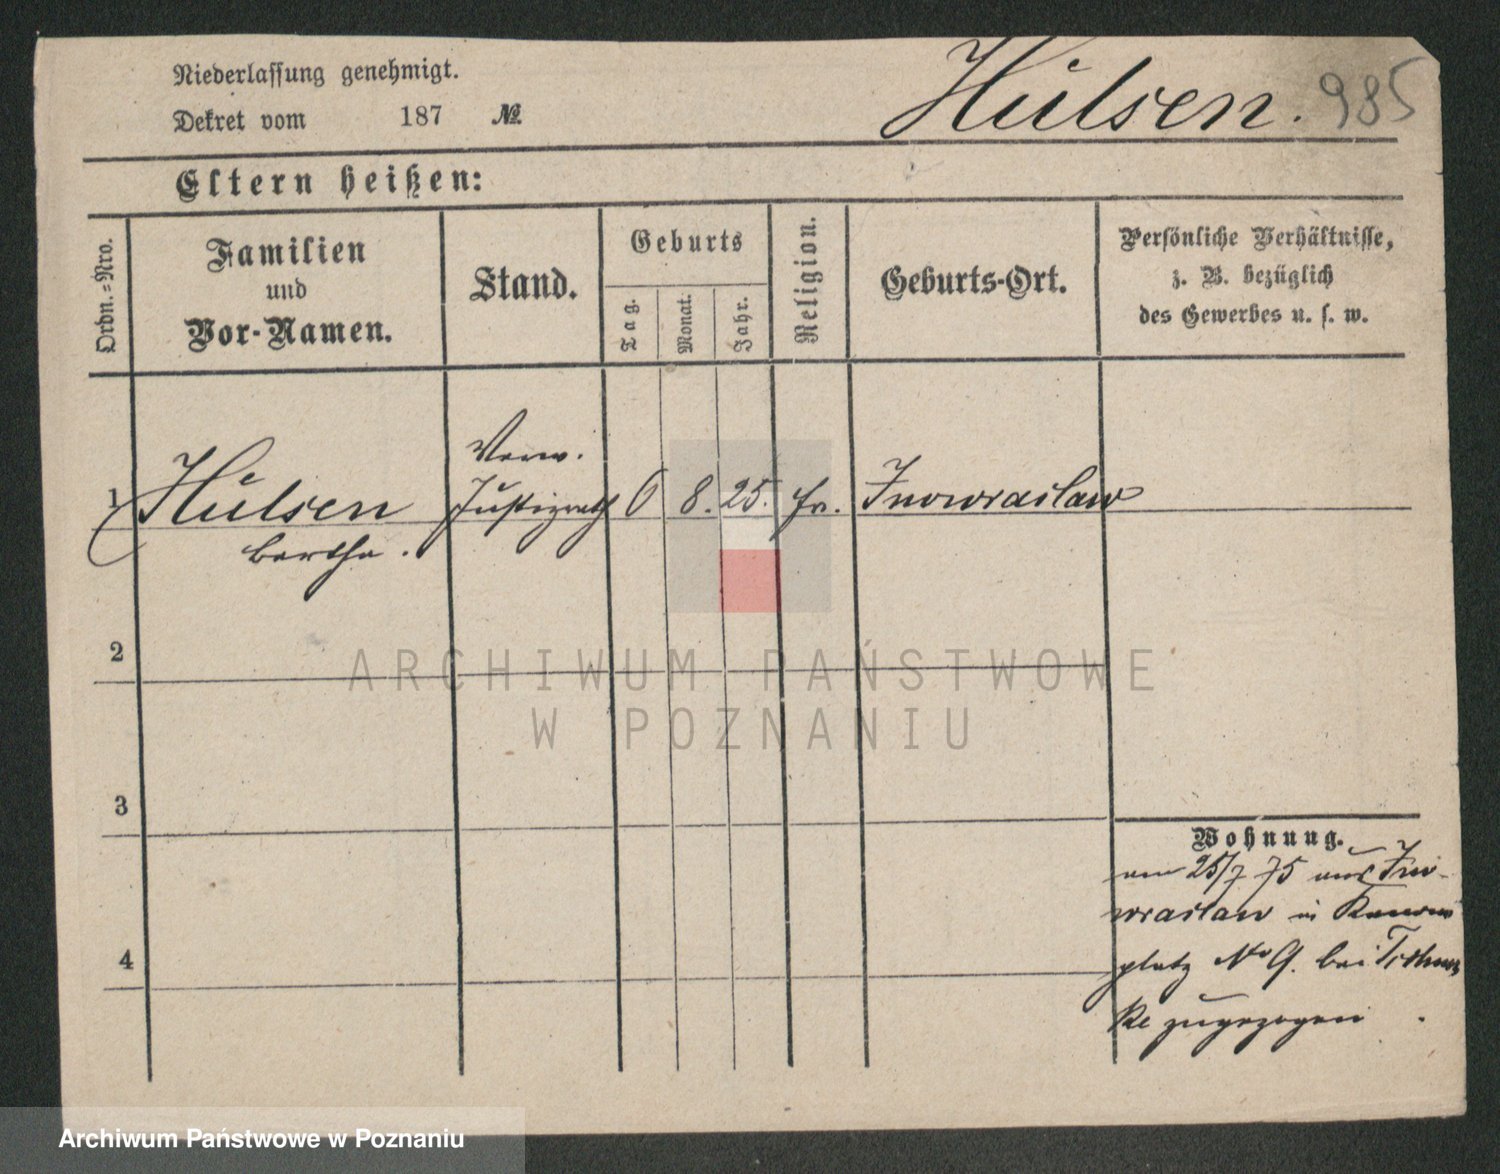 Niederlassung genehmigt.
Dekret vom 187 №
Hülsen. 985
Eltern heißen:
Ordn.=Nro.
Familien
und
Vor-Namen.
Stand.
Geburts
Tag.
Monat.
Jahr.
Religion.
Geburts-Ort.
Persönliche Verhältnisse,
z. B. bezüglich
des Gewerbes u. s. w.
Verw.
1 Hülsen Justizrath 6 8. 25. Inowraclaw
Bertha.
2
ARCHIWUM PAŃSTWOWE
W POZNANIU
3
Wohnung.
am 25/7 75 aus Ino-
wraclaw in
platz No 9. bei
ke zugezogen.
4
Archiwum Państwowe w Poznaniu